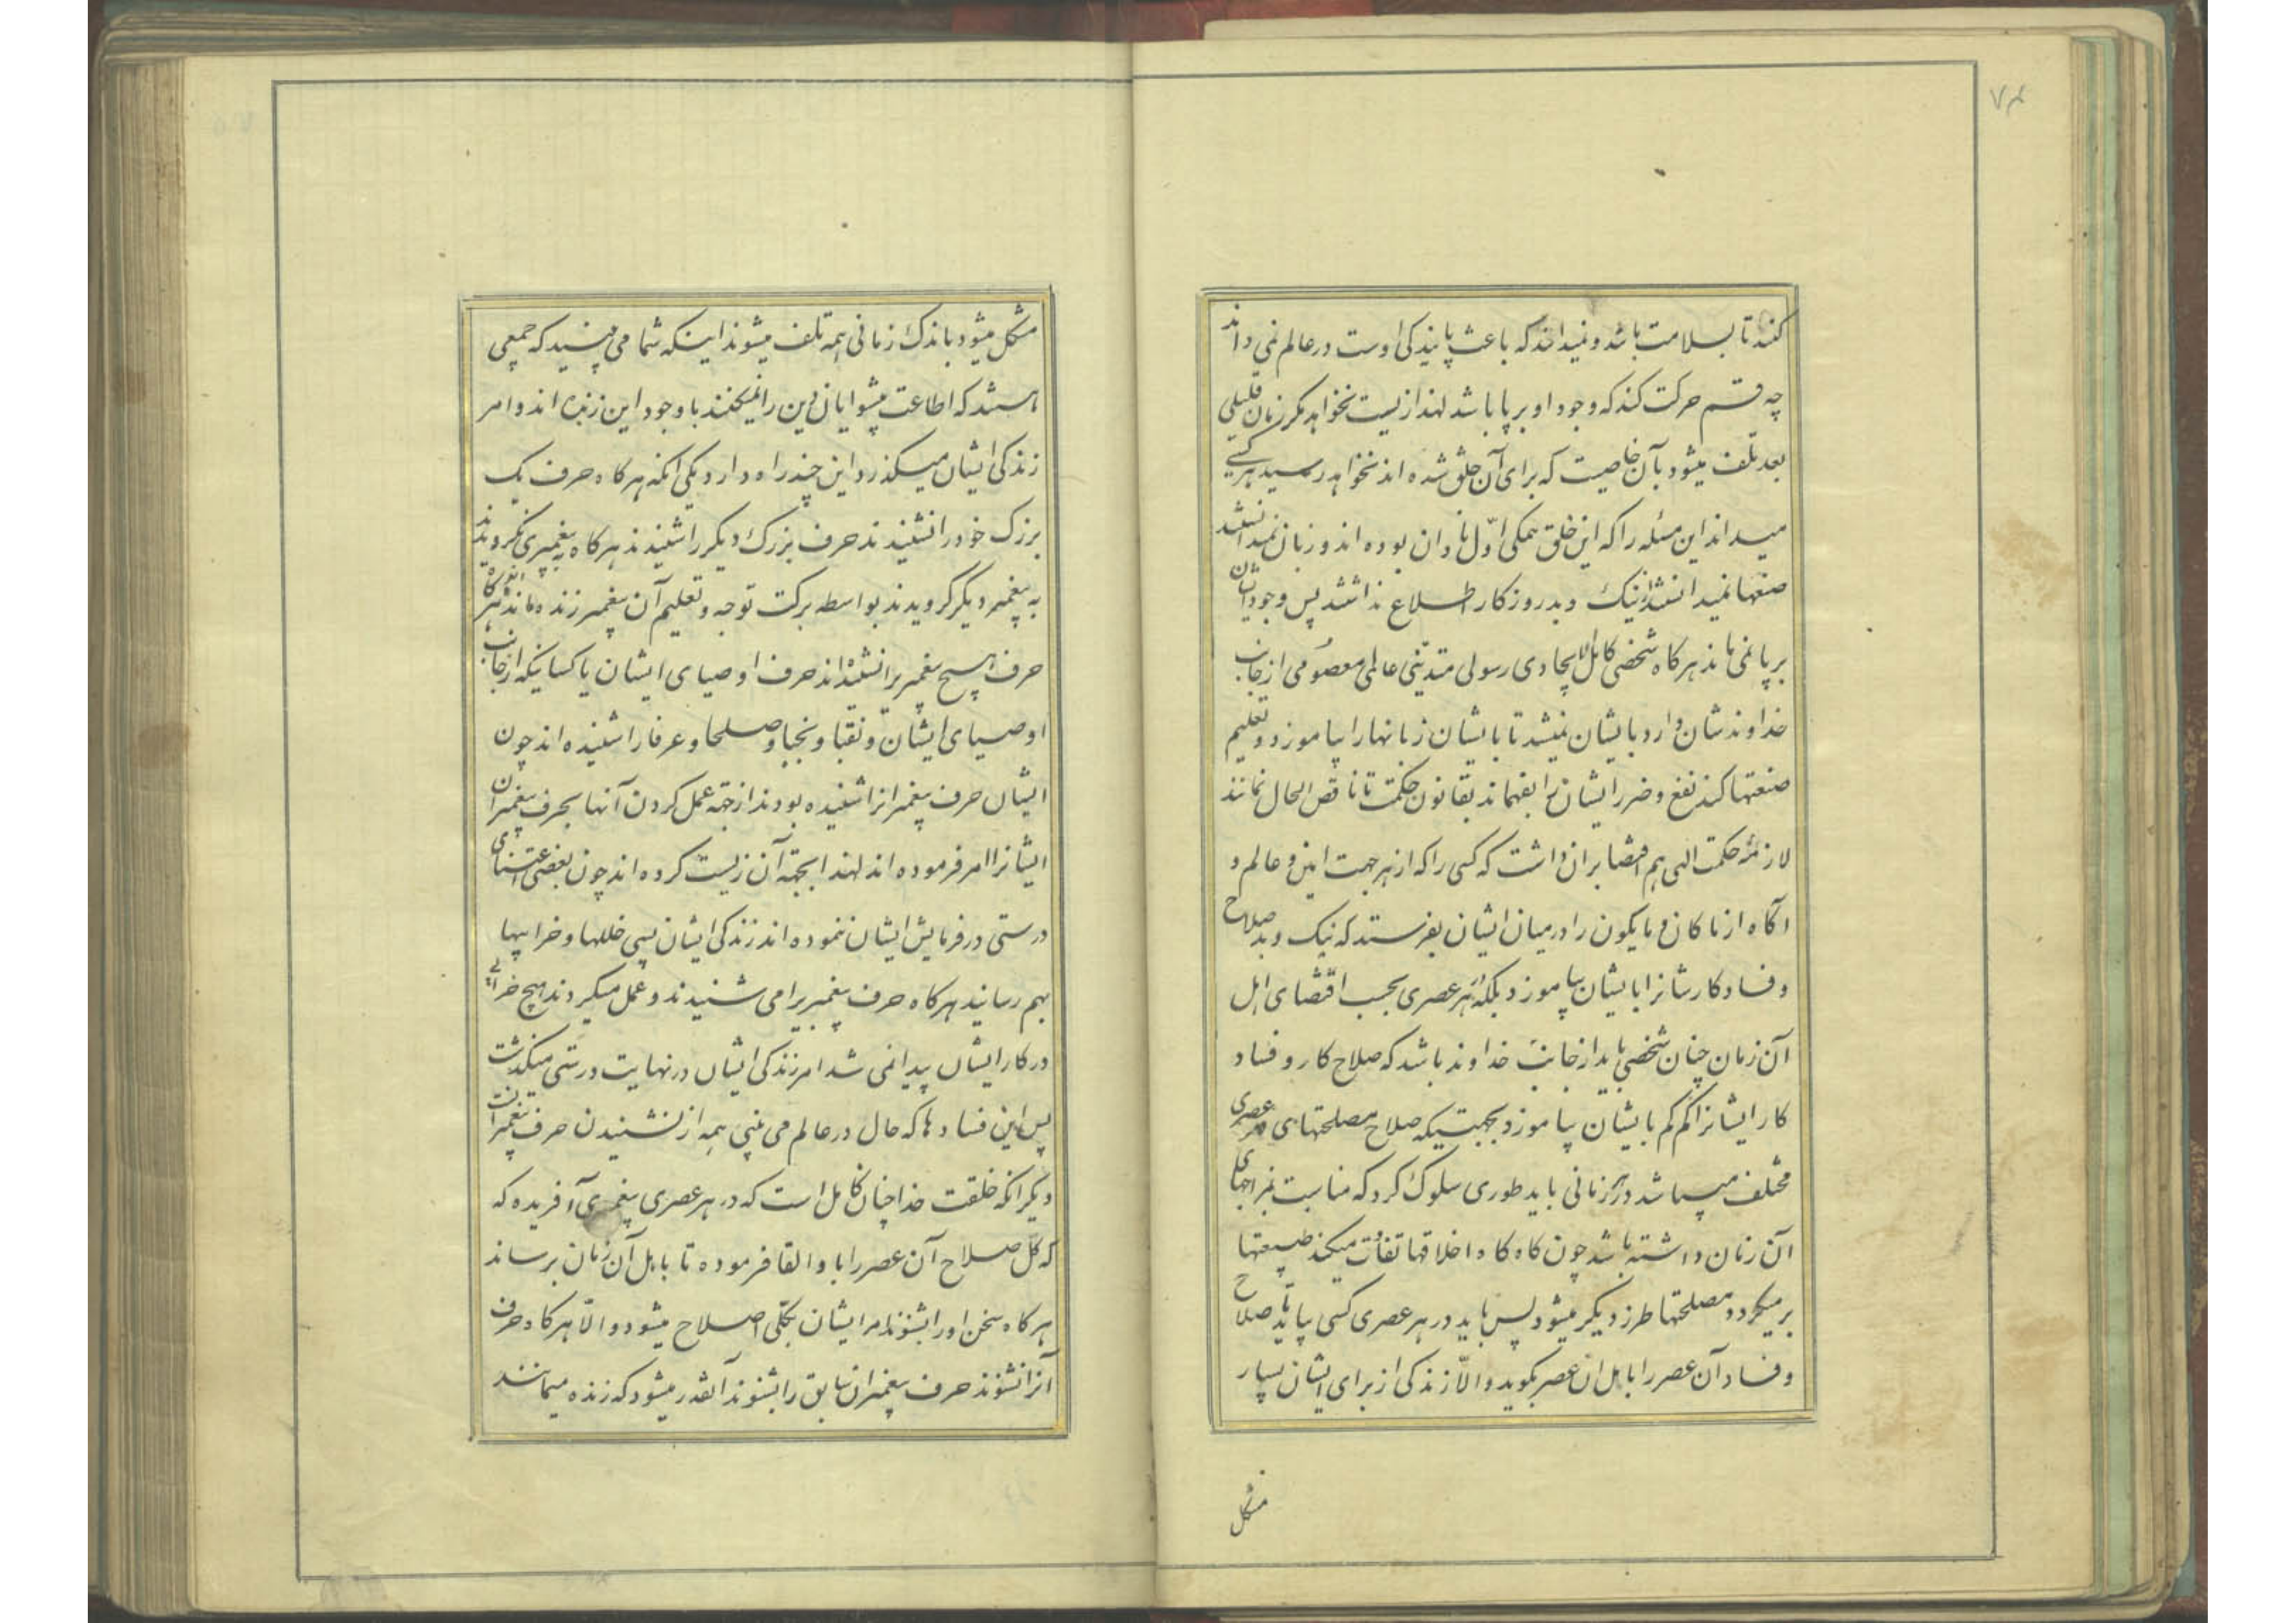 ۷۴
کنند تا بسلامت باشد و نمیدانند که باعث پایندکی اوست در عالم نمی داند
چه قسم حرکت کند که وجود او برپا باشد لهذا زیست نخواهد مکر زمان قلیلی
بعد تلف میشود بآن خاصیت که برای آن خلق شده اند نخواهد رسید هر کسی
میداند این مسئله را که این خلق همکی اوّل نادان بوده اند و زبان نمیدانستند
صنعتها نمیدانستند از نیک و بد روزکار اطلاع نداشتند پس وجود ایشان
برپا نمی ماند هر کاه شخصی کامل الایجادی رسولی متدیّنی عالمی معصومی از جانب
خداوندشان وارد بایشان نمیشد تا بایشان زبانها را بیاموزد و تعلیم
صنعتها کند نفع و ضرر ایشانرا بفهماند بقانون حکمت تا ناقص الحال نمانند
لازمهٔ حکمت الهی هم اقتضا بر آن داشت که کسی را که از هر جهت امین و عالم و
آکاه از ماکان و مایکون را در میان ایشان بفرستد که نیک و بد صلاح
و فساد کارشانرا بایشان بیاموزد بلکه هر عصری بحسب اقتضای اهل
آن زمان چنان شخصی باید از جانب خداوند باشد که صلاح کار و فساد
کار ایشانرا کم کم بایشان بیاموزد بجهتیکه صلاح مصلحتهای هر عصری
مختلف میباشد در هر زمانی باید طوری سلوک کرد که مناسبت بمزاجهای
آن زمان داشته باشد چون کاه کاه اخلاقها تفاوت میکند طبیعتها
برمیکردد مصلحتها طرز دیکر میشود پس باید در هر عصری کسی بیاید تا صلاح
و فساد آن عصر را باهل آن عصر بکوید و الّا زندکی از برای ایشان بسیار
مشکل
مشکل میشود باندک زمانی همه تلف میشوند اینکه شما می بینید که جمعی
هستند که اطاعت پیشوایان دین را نمیکنند با وجود این زنده اند و امر
زندکی ایشان میکذرد این چند راه دارد یکی آنکه هر کاه حرف یک
بزرک خود را نشنیدند حرف بزرک دیکر را شنیدند هر کاه به پیغمبری نکرویدند
به پیغمبر دیکر کرویدند بواسطه برکت توجه و تعلیم آن پیغمبر زنده ماندند و هر کاه
حرف هیچ پیغمبر را نشنیده اند حرف اوصیای ایشان یا کسانیکه از جانب
اوصیای ایشان و نقبا و نجبا و صلحا و عرفا را شنیده اند چون
ایشان حرف پیغمبرانرا شنیده بودند از جهة عمل کردن آنها بحرف پیغمبران
ایشانرا امر فرموده اند لهذا بجهة آن زیست کرده اند چون بعضی اعتنای
درستی در فرمایش ایشان ننموده اند زندکی ایشان بسی خللها و خرابیها
بهم رسانید هر کاه حرف پیغمبر را می شنیدند و عمل میکردند هیچ خرابی
در کار ایشان پیدا نمی شد امر زندکی ایشان در نهایت درستی میکذشت
پس این فسادها که حال در عالم می بینی همه از نشنیدن حرف پیغمبرانست
دیکر آنکه خلقت خدا چنان کامل است که در هر عصری پیغمبری آفریده که
که کل صلاح آن عصر را باو القا فرموده تا باهل آن زمان برساند
هر کاه سخن او را بشنوند امر ایشان بکلّی اصلاح میشود و الّا هر کاه حرف
آنرا نشوند حرف پیغمبران سابق را بشنوند آنقدر میشود که زنده میمانند